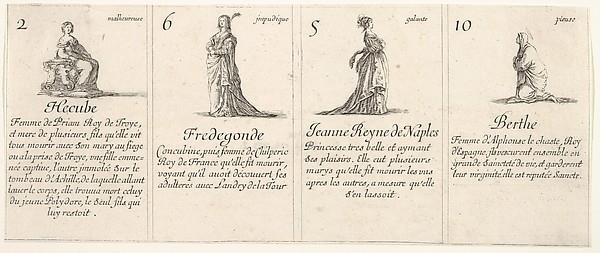 2 malheureuse
Hecube
Femme de Priam Roy de Troye,
et mere de plusieurs fils qu'elle vit
tous mourir avec son mary au siege
ou a la prise de Troye, une fille emme=
née captive, l'autre immolée sur le
tombeau d'Achille, de laquelle allant
laver le corps, elle trouva mort celuy
du jeune Polydore, le seul fils qui
luy restoit.
6 impudique
Fredegonde
Concubine, puis femme de Chilperic
Roy de France qu'elle fit mourir,
voyant qu'il avoit découvert ses
adulteres avec Landry de la Tour
5 galante
Jeanne Reyne de Naples
Princesse tres belle et aymant
ses plaisirs. Elle eut plusieurs
marys qu'elle fit mourir les uns
apres les autres, a mesure qu'elle
s'en lassoit.
10 pieuse
Berthe
Femme d'Alphonse le chaste, Roy
d'Espagne, ils vécurent ensemble en
grande Saincteté de vie, et garderent
leur virginité, elle est reputée Saincte.